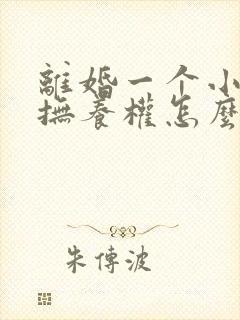 離婚一个小
撫養權怎麼
朱傳波